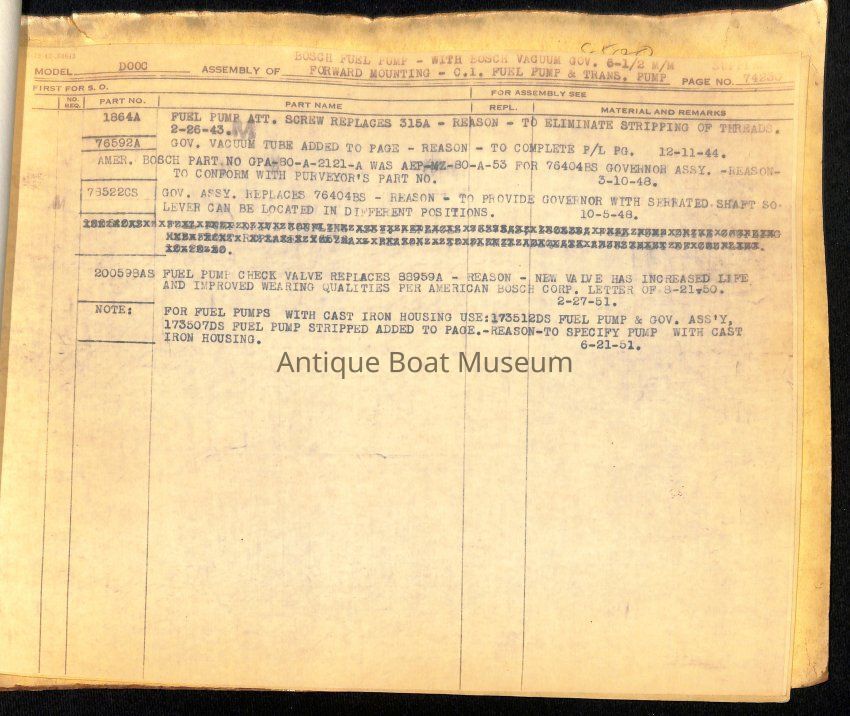 BOSCH FUEL PUMP - WITH BOSCH VACUUM GOV. 6-1/2 M/M
MODEL DOOC ASSEMBLY OF FORWARD MOUNTING - C.I. FUEL PUMP & TRANS. PUMP PAGE NO. 74230
FIRST FOR S. O. FOR ASSEMBLY SEE
NO. REQ. PART NO. PART NAME REPL. MATERIAL AND REMARKS
1864A FUEL PUMP ATT. SCREW REPLACES 315A - REASON - TO ELIMINATE STRIPPING OF THREADS.
2-26-43. M
76592A GOV. VACUUM TUBE ADDED TO PAGE - REASON - TO COMPLETE P/L PG. 12-11-44.
AMER. BOSCH PART NO GPA-80-A-2121-A WAS AEP-MZ-80-A-53 FOR 76404BS GOVERNOR ASSY. -REASON-
TO CONFORM WITH PURVEYOR'S PART NO. 3-10-48.
76522CS GOV. ASSY. REPLACES 76404BS - REASON - TO PROVIDE GOVERNOR WITH SERRATED SHAFT SO
LEVER CAN BE LOCATED IN DIFFERENT POSITIONS. 10-5-48.
200598AS FUEL PUMP CHECK VALVE REPLACES 88959A - REASON - NEW VALVE HAS INCREASED LIFE
AND IMPROVED WEARING QUALITIES PER AMERICAN BOSCH CORP. LETTER OF 8-21-50.
2-27-51.
NOTE: FOR FUEL PUMPS WITH CAST IRON HOUSING USE:173512DS FUEL PUMP & GOV. ASS'Y,
173507DS FUEL PUMP STRIPPED ADDED TO PAGE.-REASON-TO SPECIFY PUMP WITH CAST
IRON HOUSING. 6-21-51.
Antique Boat Museum